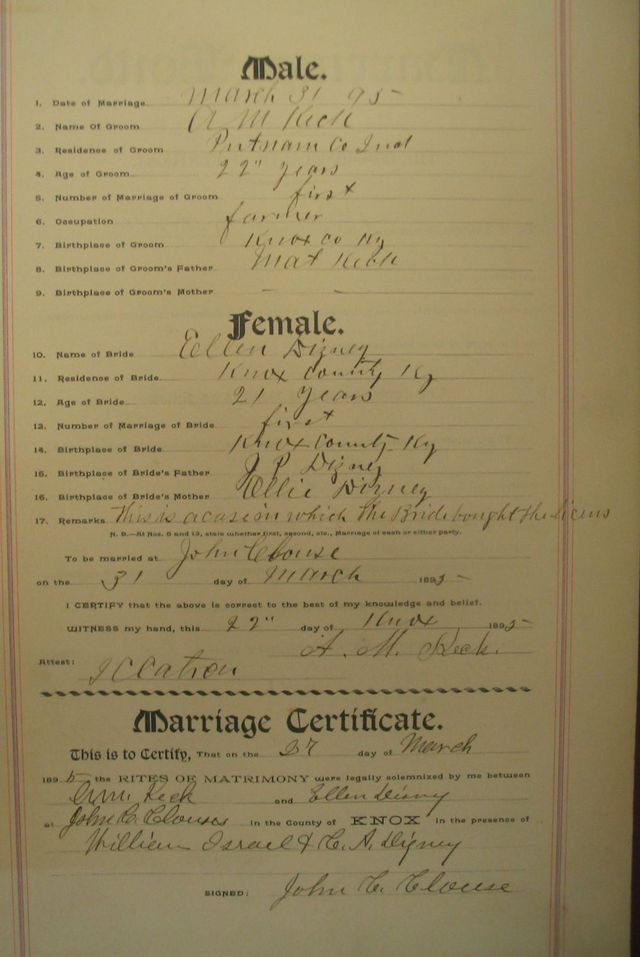 Male.
1. Date of Marriage March 31 95
2. Name Of Groom A M Keck
3. Residence of Groom Putnam Co Ind
4. Age of Groom 22" years
5. Number of Marriage of Groom first
6. Occupation farmer
7. Birthplace of Groom Knox co Ky
8. Birthplace of Groom's Father Mat Keck
9. Birthplace of Groom's Mother - -
Female.
10. Name of Bride Ellen Dizney
11. Residence of Bride Knox County Ky
12. Age of Bride 21 years
13. Number of Marriage of Bride first
14. Birthplace of Bride Knox County Ky
15. Birthplace of Bride's Father J P Dizney
16. Birthplace of Bride's Mother Ellie Dizney
17. Remarks This is a case in which the Bride bought the licens
N. B.—At Nos. 5 and 13, state whether first, second, etc., Marriage of each or either party.
To be married at John Clouse
on the 31 day of March 1895
I CERTIFY that the above is correct to the best of my knowledge and belief.
WITNESS my hand, this 22" day of Knox 1895
A. M. Keck.
Attest: J C Catron
Marriage Certificate.
This is to Certify, That on the day of March
1895 the RITES OF MATRIMONY were legally solemnized by me between
Keck and Ellen Disny
at John C. Clouses in the County of KNOX in the presence of
William Israel & C. A. Digney
SIGNED: John C. Clouse